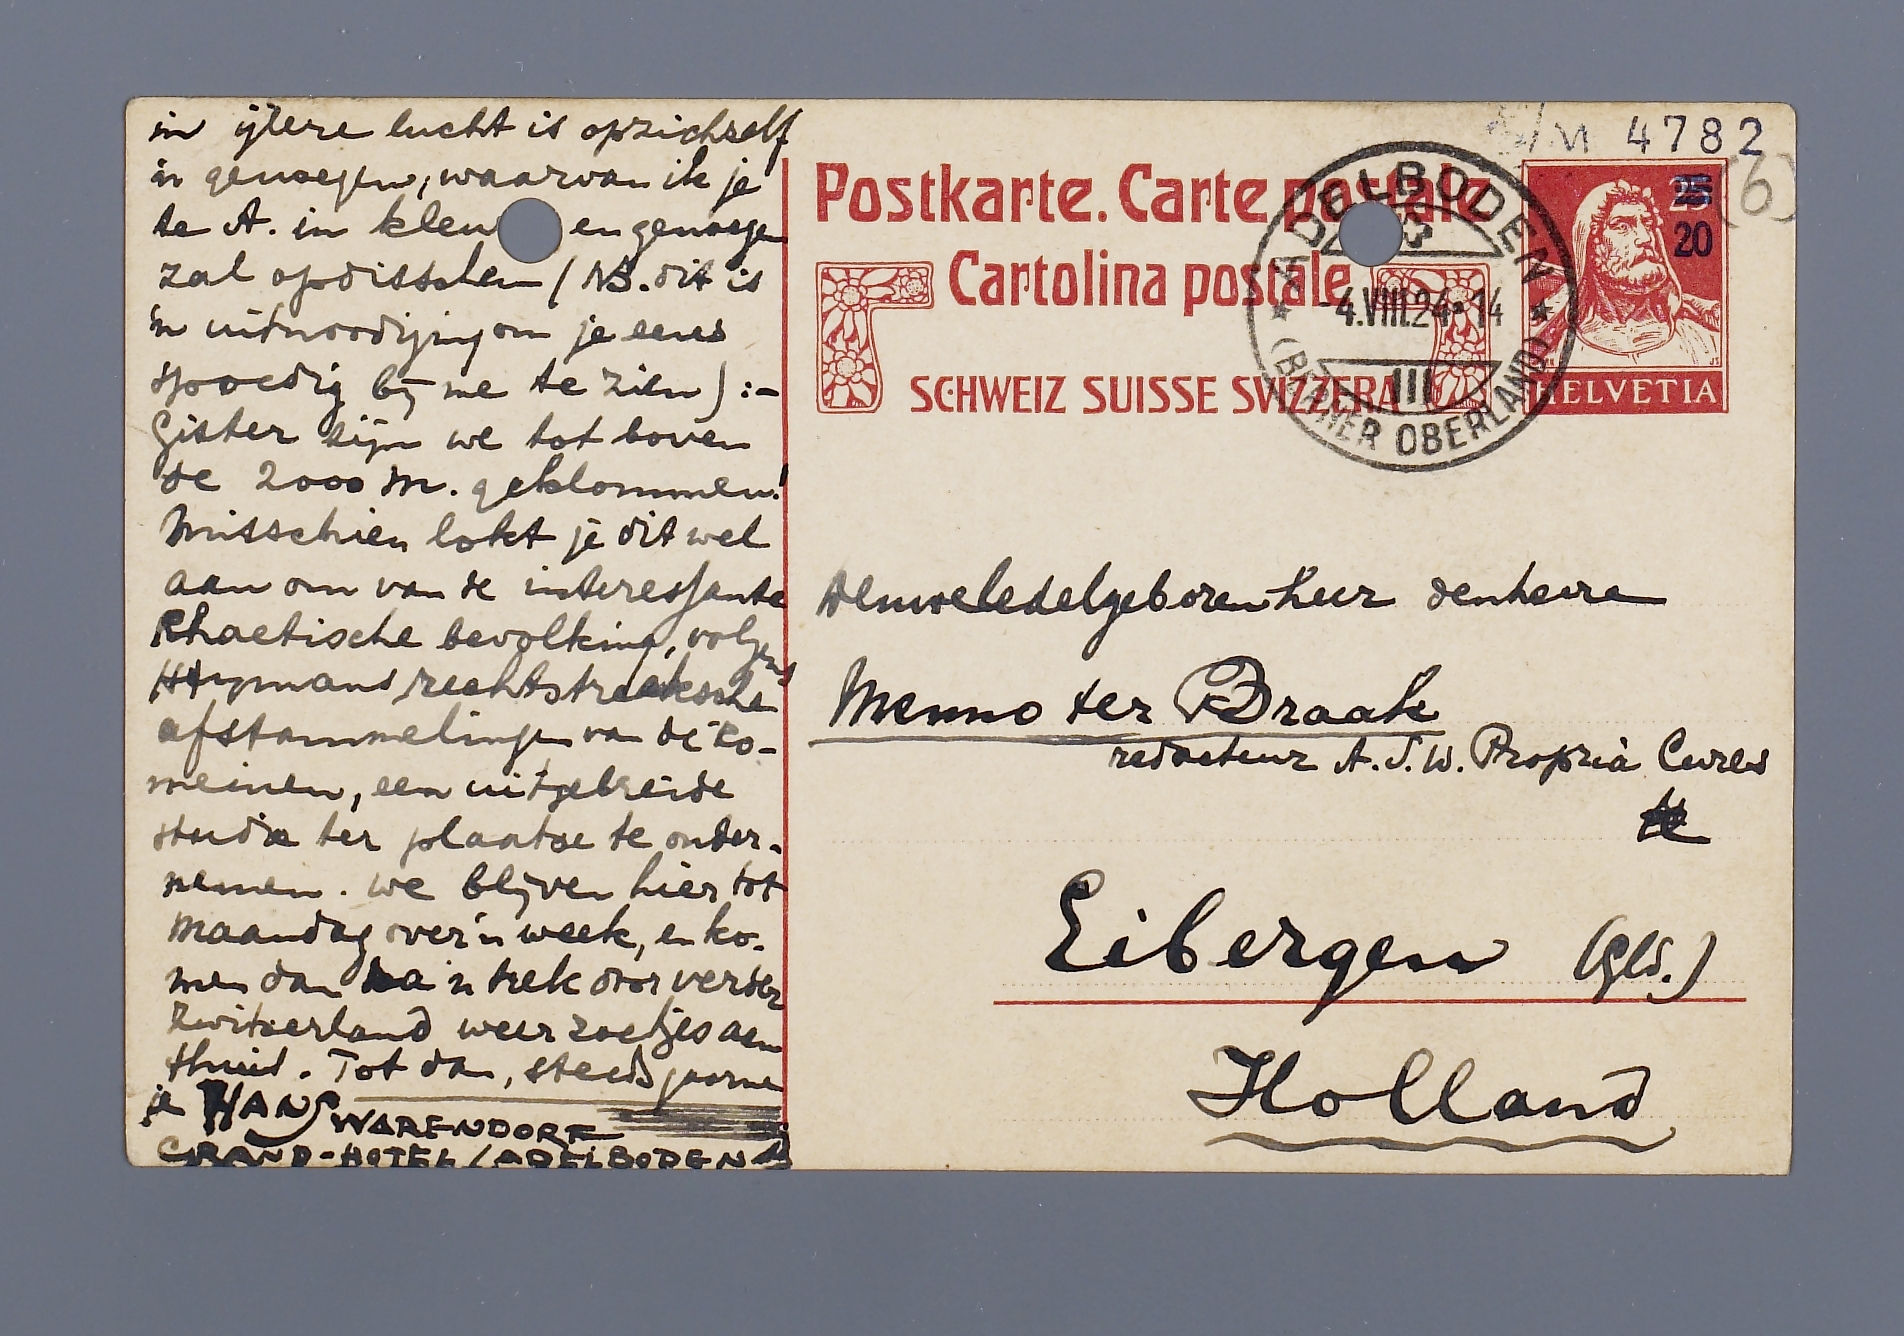 in ijlere lucht is opzichzelf
'n genoegen, waarvan ik je
te A. in kleur en genoegen
zal opdisschen (NB. dit is
'n uitnoodiging om je eens
spoedig bij me te zien) :-
Gister zijn we tot boven
de 2000 m. geklommen!
Misschien lokt je dit wel
aan om van de interessante
Rhaetische bevolking, volgens
Heymans rechtstreeksche
afstammelingen van de Ro-
meinen, een uitgebreide
studie ter plaatse te onder-
nemen. We blijven hier tot
Maandag over 'n week, en ko-
men dan na 'n trek door verder
Zwitserland weer zoetjes aan
thuis. Tot dan, steeds gaarne
je HANS WARENDORF
GRAND-HOTEL / ADELBODEN
4782
(6)
Postkarte. Carte postale
Cartolina postale
SCHWEIZ SUISSE SVIZZERA
ADELBODEN
-4.VIII.24-14
III
(BERNER OBERLAND)
25
20
HELVETIA
Denweledelgeboren heer den heere
Menno ter Braak
redacteur A.S.W. Propria Cures
te
Eibergen (Gld.)
Holland